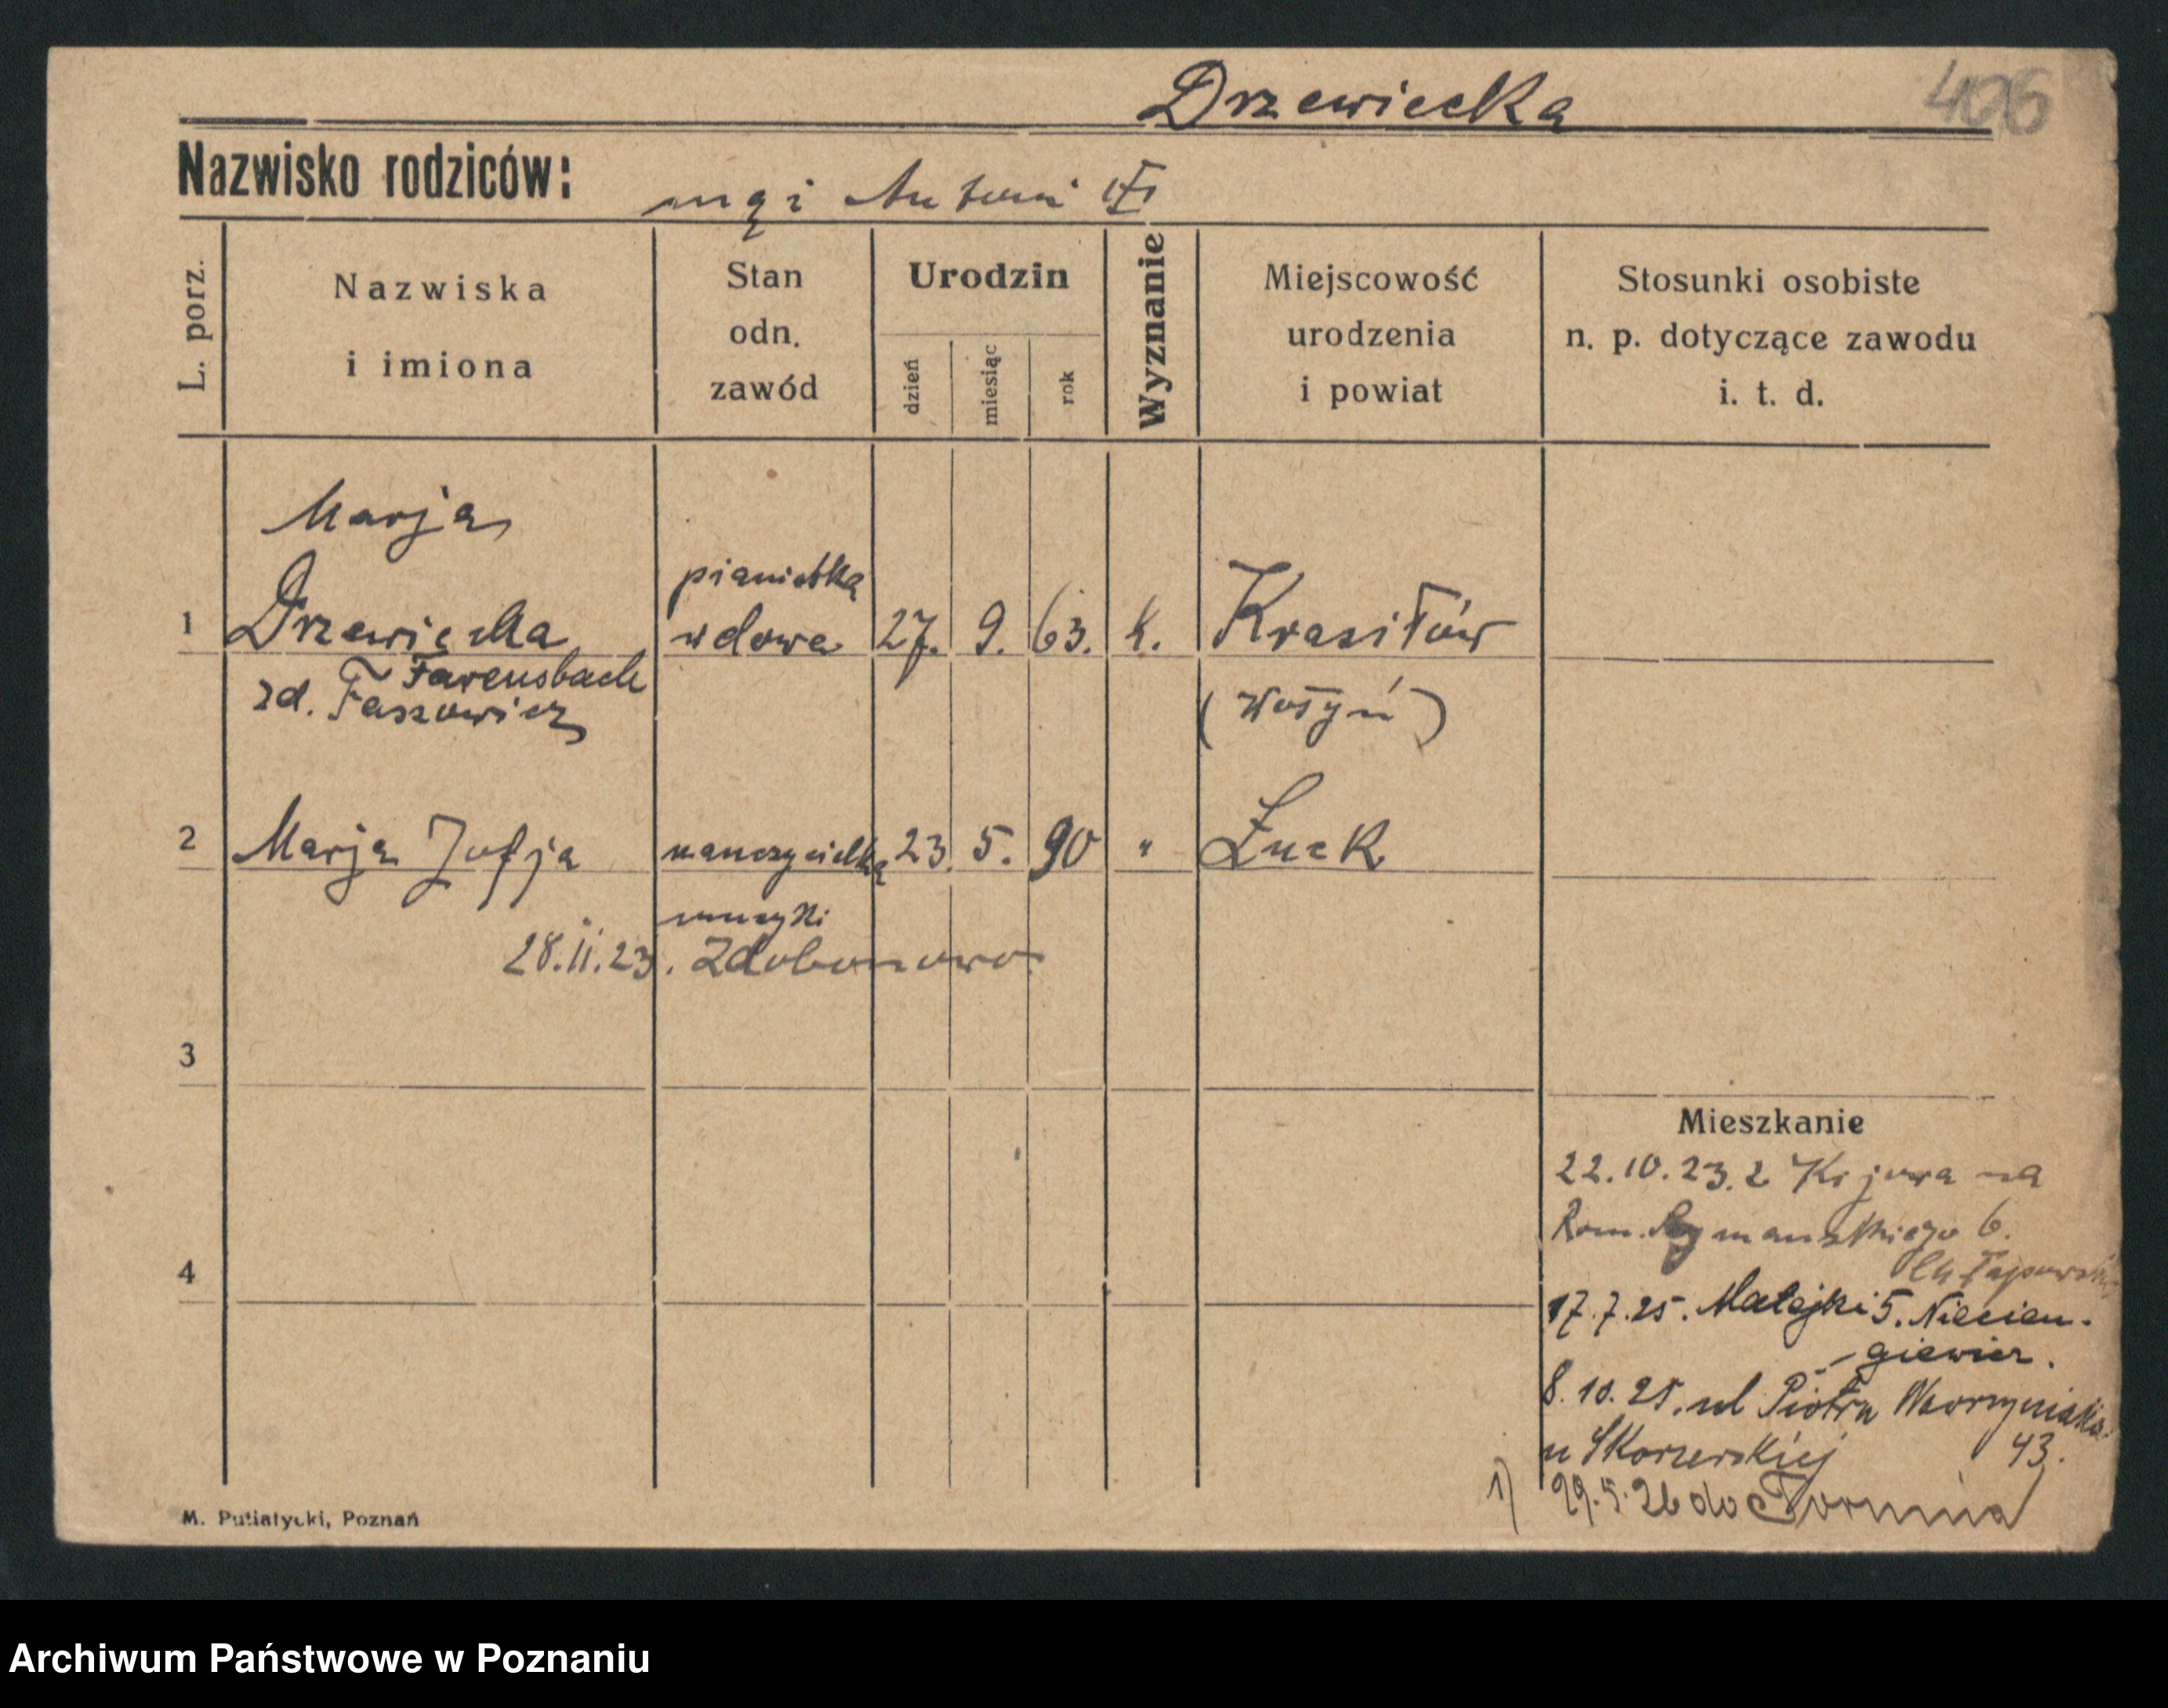 Drzewiecka
Nazwisko rodziców:
mąż Antoni
L. porz.
Nazwiska
i imiona
Stan
odn.
zawód
Urodzin
dzień
miesiąc
rok
Wyznanie
Miejscowość
urodzenia
i powiat
Stosunki osobiste
n. p. dotyczące zawodu
i. t. d.
Marja
pianistka
1 Drzewiecka wdowa 27. 9. 63. k. Krasiłów
Farensbach
zd. Faszowicz
(Wołyń)
2 Marja Zofja nauczycielka 23. 5. 90 " Łuck
muzyki
28.11.23. Zdobonowo
3
4
Mieszkanie
22.10.23. z Kijowa na
Rom. Szymańskiego 6.
17.7.25. Matejki 5. Niecien-
-giewicz.
8.10.25. ul Piotra Wawrzyniaka
u Skorzewskiej 43.
1) 29.5.26 do Torunia
M. Putiatycki, Poznań
Archiwum Państwowe w Poznaniu